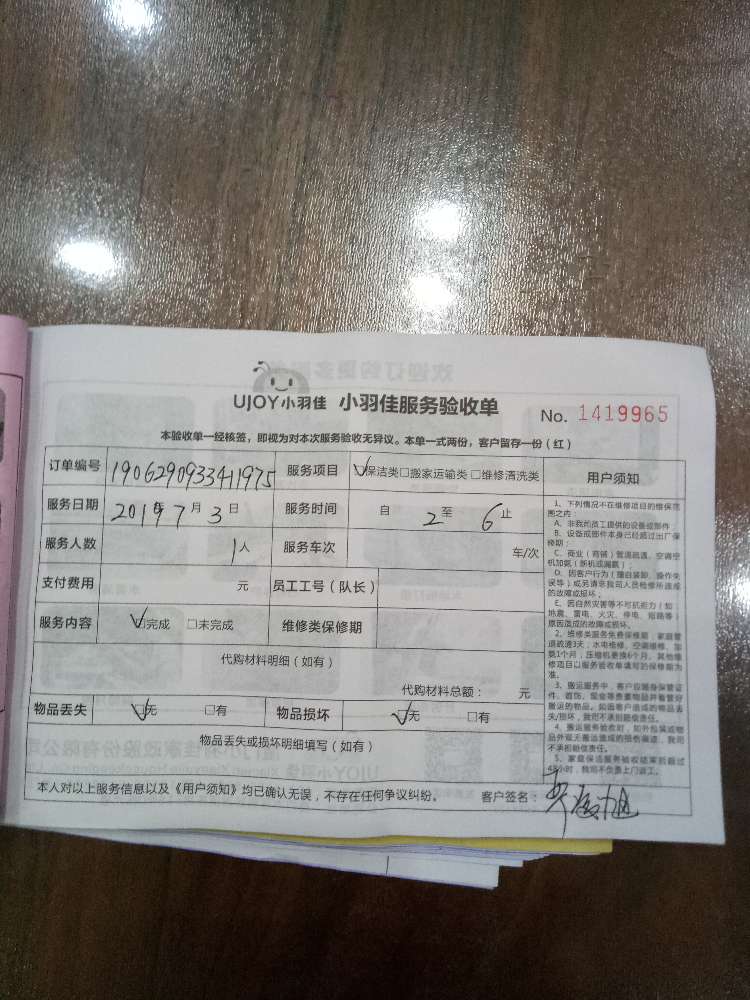 UJOY小羽佳 小羽佳服务验收单 No. 1419965
本验收单一经核签，即视为对本次服务验收无异议。本单一式两份，客户留存一份（红）
订单编号 190629093341975 服务项目 ☑保洁类□搬家运输类□维修清洗类 用户须知
服务日期 2019年7月3日 服务时间 自2至6止
服务人数 1人 服务车次 车/次
支付费用 元 员工工号（队长）
服务内容 ☑完成 □未完成 维修类保修期
代购材料明细（如有）
代购材料总额： 元
物品丢失 ☑无 □有 物品损坏 ☑无 □有
物品丢失或损坏明细填写（如有）
本人对以上服务信息以及《用户须知》均已确认无误，不存在任何争议纠纷。 客户签名：
1、下列情况不在维修项目的维保范
围之内：
A、非我司员工提供的设备或部件；
B、设备或部件本身已经超过出厂保
修期；
C、商业（商铺）管道疏通、空调空
机加氨（新机或漏氨）；
D、因客户行为（擅自装卸、操作失
误等）或另请非我司人员检修所造成
的故障或损坏；
E、因自然灾害等不可抗拒力（如
地震、雷电、火灾、停电、短路等）
原因造成的故障或损坏。
2、维修类服务免费保修期：家庭管
道疏通3天，水电检修、空调维修、加
氨1个月，压缩机更换6个月，其他维
修项目以服务验收单填写的保修期为
准。
3、搬运服务中，客户应随身保管证
件、首饰、现金等贵重物品并看管好
搬运的物品。如因客户造成的物品丢
失/损坏，我司不承担赔偿责任。
4、搬运服务验收时，如外包装或物
品外观无搬运造成的损伤痕迹，我司
不承担赔偿责任。
5、家庭保洁服务验收结束后超过
48小时，我司不负责上门返工。